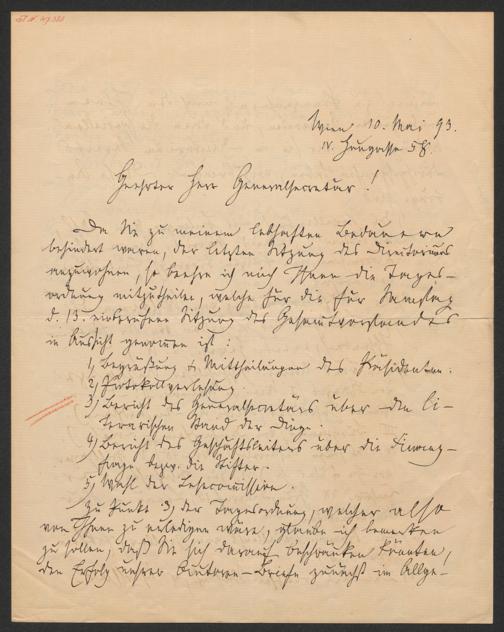 Wien 10. Mai 93.
IV. Heugasse 58.
Geehrter Herr Generalsecretär!
Da Sie zu meinem lebhaften Bedauern
behindert waren, der letzten Sitzung des Directoriums
anzuwohnen, so beehre ich mich Ihnen die Tages-
ordnung mitzutheilen, welche für die für Samstag
d. 13. einberufene Sitzung des Gesamtvorstandes
in Aussicht genommen ist:
1) Begrüßung u. Mittheilungen des Präsidenten.
2) Protokollverlesung.
3) Bericht des Generalsecretärs über den li-
terarischen Stand der Dinge.
4) Bericht des Geschäftsleiters über die Finanz-
frage bezw. die Stifter.
5) Wahl der Lesecommission.
Zu Punkt 3) der Tagesordnung, welcher also
von Ihnen zu erledigen wäre, glaube ich bemerken
zu sollen, daß Sie sich darauf beschränken könnten,
den Erfolg unserer Autoren-Briefe zunächst im Allge-